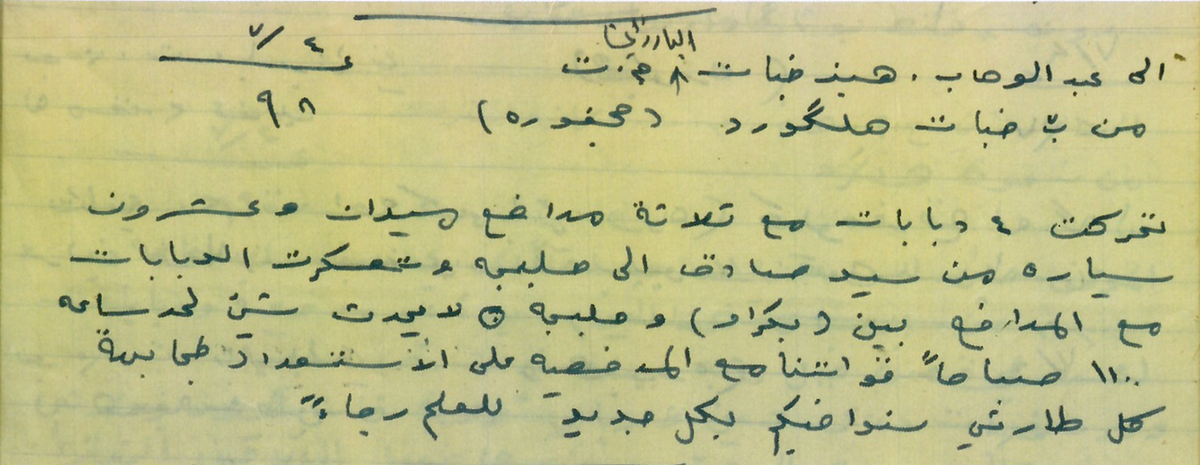 البارزاني ٤/٧
الى عبد الوهاب . هيز خبات ٨ ٩٨
من خبات هلگورد (محفوره)
تحركت ٤ دبابات مع ثلاثة مدافع ميدان وعشرون
سياره من سيد صادق الى حلبجه وتعسكرت الدبابات
مع المدافع بين (بكراو) وحلبجه لا يحدث شيئ لحد ساعه
١١٠٠ صباحاً قواتنا مع المدفعيه على الأستعداد لمجابهة
كل طارئ سنوافيكم بكل جديد للعلم رجاءً